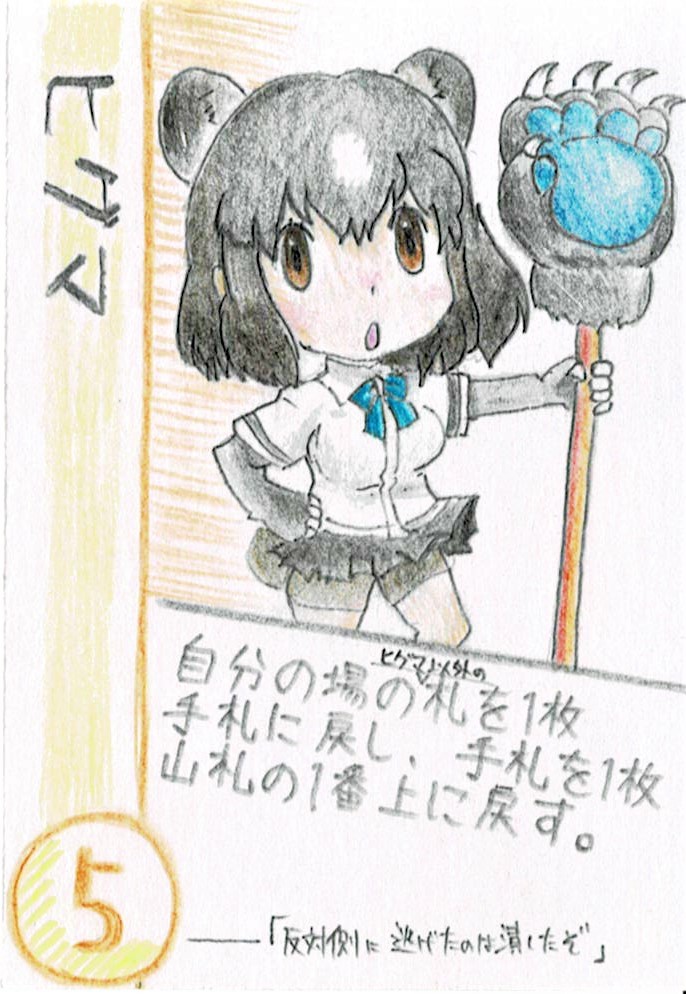 ヒグマ
ヒグマ以外の
自分の場の札を1枚
手札に戻し、手札を1枚
山札の1番上に戻す。
5
――「反対側に逃げたのは潰したぞ」